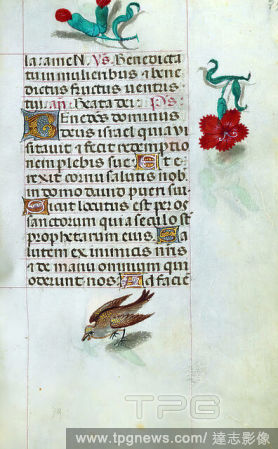 la: ameN. Vs. Benedicta
tu in mulieribus et bene
dictus fructus ventris
tui. añ. Beata dei. Ps.
Benedictus dominus
deus israel quia vi
sitavit et fecit redemptio
nem plebis sue. Et e
rexit cornu salutis nob
in domo david pueri sui
Sicut locutus est per os
sanctorum qui a seculo st
prophetarum eius. Sa
lutem ex inimicis nris
et de manu omnium qui
oderunt nos. Ad facie
TPG
www.tpgnews.com/ 達志影像